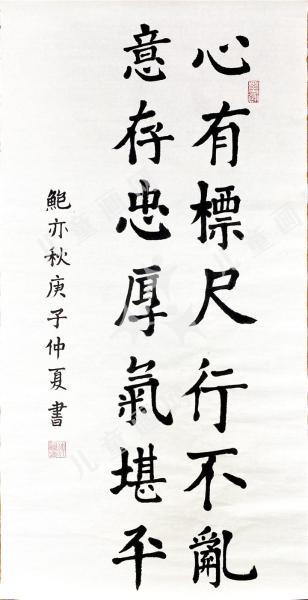 心有標尺行不亂
意存忠厚氣堪平
鮑亦秋庚子仲夏書